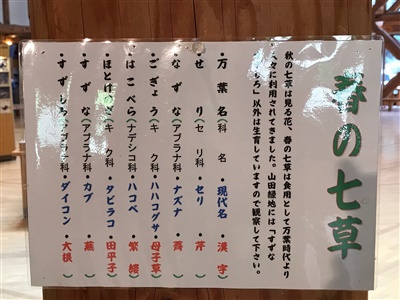 春の七草
秋の七草は見る花、春の七草は食用として万葉時代より
人々に利用されてきました。山田緑地には「すずな
すずしろ」以外は生育していますので観察して下さい。
・万葉名(科名)・現代名・(漢字)
・せり(セリ科)・セリ・(芹)
・なずな(アブラナ科)・ナズナ・(薺)
・ごぎょう(キク科)・ハハコグサ・(母子草)
・はこべら(ナデシコ科)・ハコベ・(繁縷)
・ほとけのざ(キク科)・タビラコ・(田平子)
・すずな(アブラナ科)・カブ・(蕪)
・すずしろ(アブラナ科)・ダイコン・(大根)